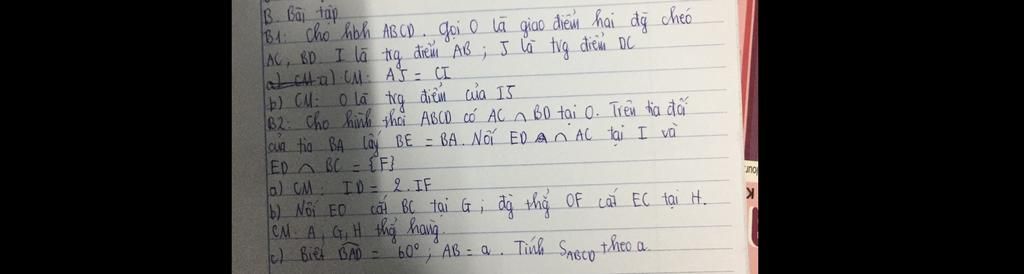 B. Bài tập
B1: Cho hbh ABCD. gọi O là giao điểm hai đg chéo
AC, BD. I là trg điểm AB ; J là trg điểm DC
a) CM: AJ = CI
b) CM: O là trg điểm của IJ
B2: Cho hình thoi ABCD có AC ∩ BD tại O. Trên tia đối
của tia BA lấy BE = BA. Nối ED ∩ AC tại I và
ED ∩ BC = {F}
a) CM: ID = 2.IF
b) Nối EO cắt BC tại G ; đg thg OF cắt EC tại H.
CM: A, G, H thg hàng
c) Biết BAD = 60° ; AB = a. Tính SABCD theo a